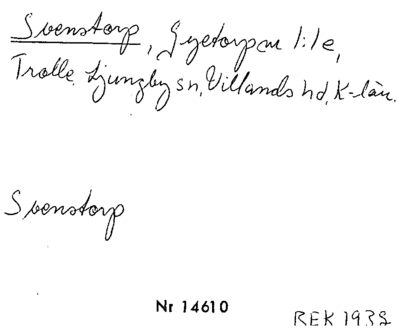 Svenstorp, Gyetorp nr 1:1 e,
Trolle Ljungby sn, Villands hd, K-län.
Svenstorp
Nr 14610
REK 1932